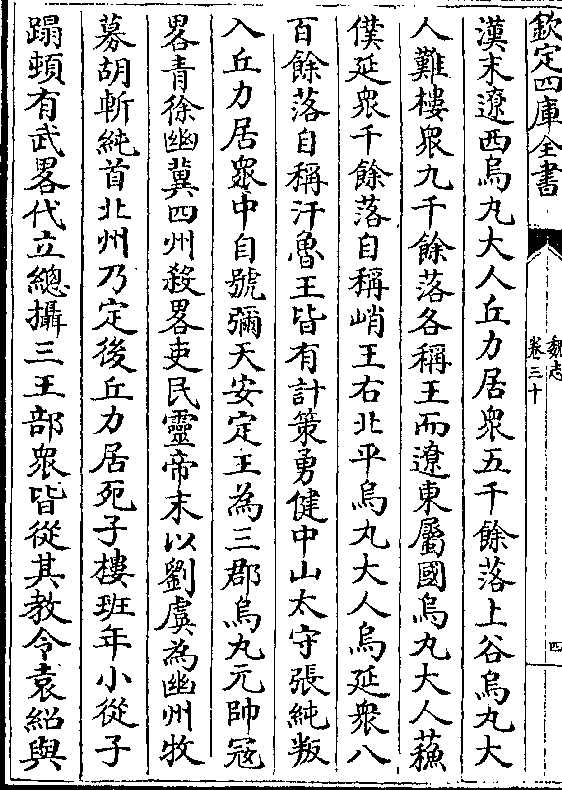 欽定四庫全書
魏志
卷三十
四
漢末遼西烏丸大人丘力居衆五千餘落上谷烏丸大
人難樓衆九千餘落各稱王而遼東屬國烏丸大人蘓
僕延衆千餘落自稱峭王右北平烏丸大人烏延衆八
百餘落自稱汗魯王皆有計策勇健中山太守張純叛
入丘力居衆中自號彌天安定王為三郡烏丸元帥冦
畧青徐幽冀四州殺畧吏民靈帝末以劉虞為幽州牧
募胡斬純首北州乃定後丘力居死子樓班年小從子
蹋頓有武畧代立總攝三王部衆皆從其教令袁紹與